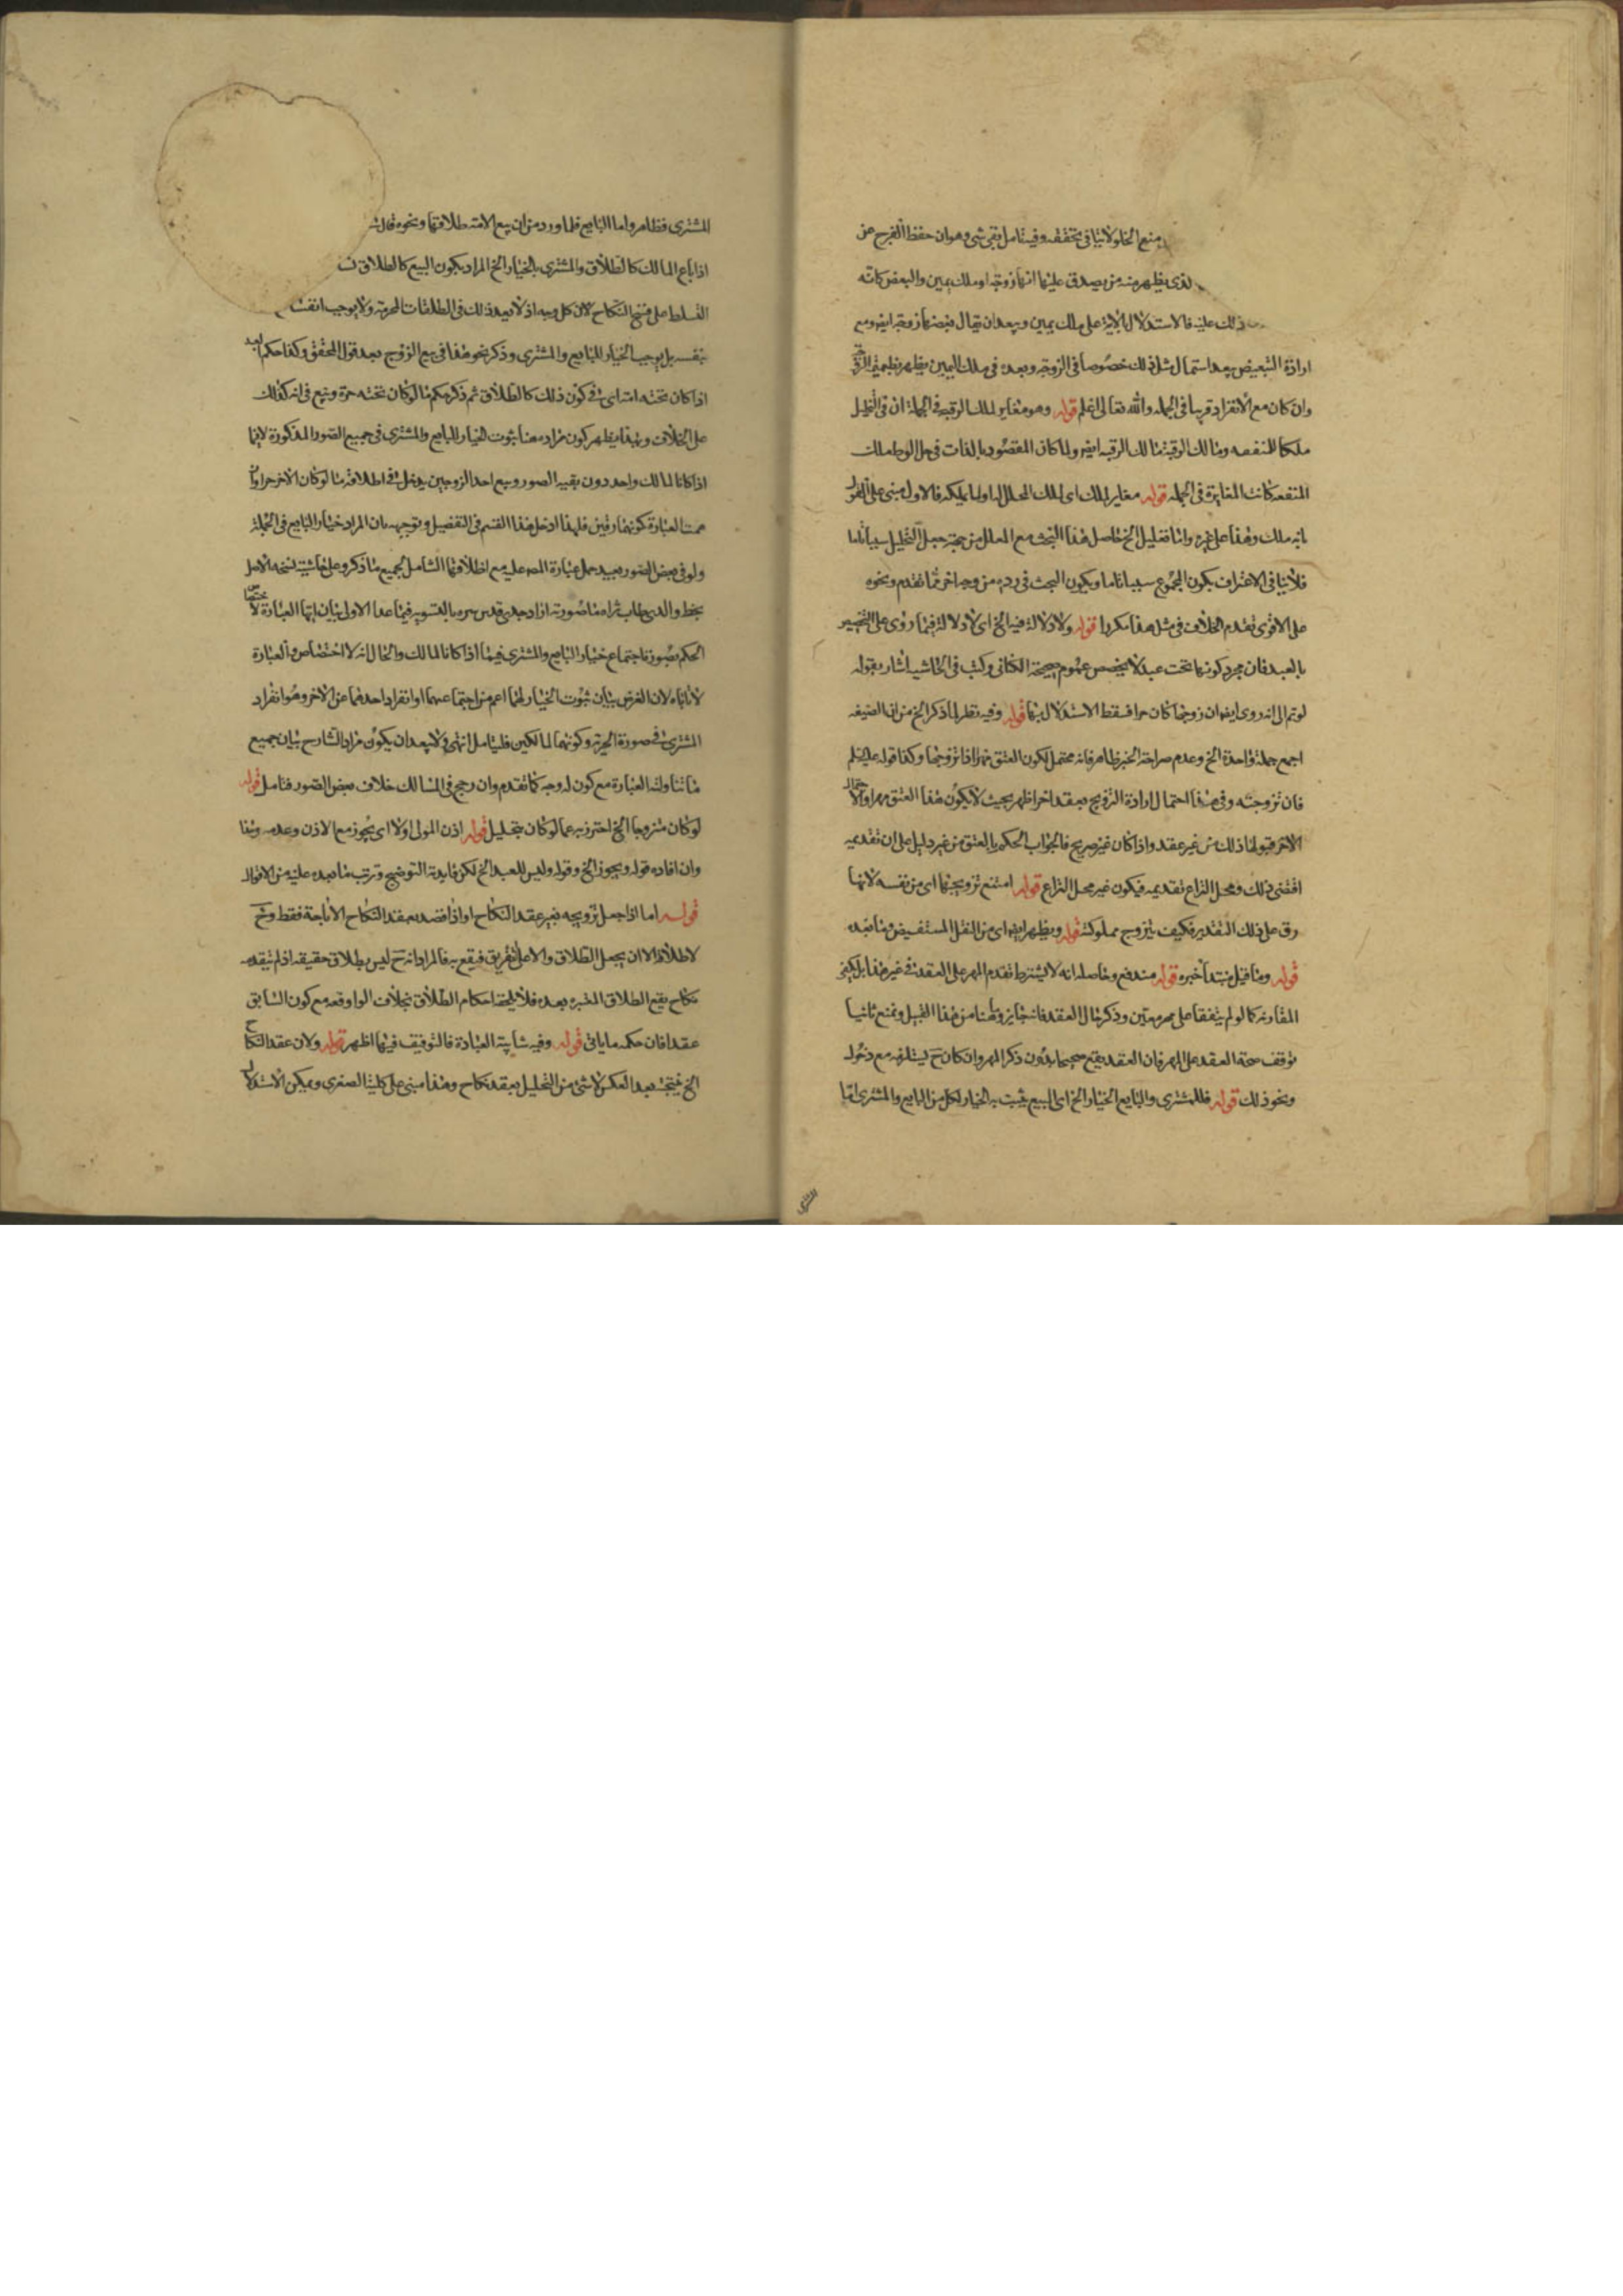 منع الخلو لا ينافى تحققه وفيه تامل بقى شى وهو ان حفظ الفرج عن
الذى يظهر منه من يصدق عليها انها زوجة او ملك يمين والبعض كانه
ذلك عليه فالاستدلال بالاية على ملك يمين وبعد ان يقال فبضعها زوجة ايضا ومع
ارادة التبعيض بعد استعمال مثل ذلك خصوصا فى الزوجة وبعده فى ملك اليمين يظهر
وان كان مع الانفراد قريبا فى الجملة والله تعالى اعلم قوله وهو مغاير لملك الرقبة فى الجملة ان فى التحليل
ملكا للمنفعة ومالك الرقبة مالك الرقبة ايضا ولما كان المقصود بالذات فى حل الوطء ملك
المنفعة كانت المغايرة فى الجملة قوله مغاير لملك اى لملك المحلل له او لما يملكه فالاول مبنى على القول
بانه ملك وهذا على غيره واما تعليل الخ حاصل هذا البحث مع المعلل من جهة جعل التحليل سببا تاما
فلا ينافى الاعتراف بكون المجموع سببا تاما ويكون البحث فى رده من وجه اخر مما تقدم ونحوه
على الاقوى تقدم الخلاف فى مثل هذا مكررا قوله ولا دلالة فيه الخ اى لا دلالة فيما روى على التخيير
بالعبد فان مجرد كونها تحت عبد لا يخصص عموم صحيحة الكنانى وكتب فى الحاشية اشار بقوله
لو تم الى انه روى ايضا ان زوجها كان حرا فسقط الاستدلال بها قوله وفيه نظر لما ذكر الخ من ان الصيغة
اجمع جملة واحدة الخ وعدم صراحة الخبر ظاهر فانه محتمل لكون العتق مهرا اذا تزوجها وكذا قوله
فان تزوجته وفى هذا احتمال ارادة التزويج بعقد اخر اظهر بحيث لا يكون هذا العتق مهرا والاحتمال
الاخر قبولها ذلك من غير عقد واذا كان غير صريح فالجواب الحكم بالعتق من غير دليل على ان تقديمه
اقتضى ذلك ومحل النزاع تقديمه فيكون غير محل النزاع قوله امتنع تزويجها اى من نفسه لانها
رق على ذلك التقدير فكيف يتزوج مملوكته قوله ويظهر ايضا اى من النقل المستفيض وما بعده
قوله وما قيل مبتدأ خبره قوله مندفع وحاصله انه لا يشترط تقدم المهر على العقد فى غير هذا بل يكفى
المقارنة كما لو لم يتفقا على مهر معين وذكر حال العقد فانه جايز وهنا من هذا القبيل ونمنع ثانيا
توقف صحة العقد على المهر فان العقد يقع صحيحا بدون ذكر المهر وان كان ح يستلزمه مع دخوله
ونحو ذلك قوله فللمشترى والبايع الخيار الخ اى البيع يثبت به الخيار لكل من البايع والمشترى اما
المشترى
المشترى فظاهر واما البايع فلما ورد من ان بيع الامة طلاقها ونحوه قال
اذا باع المالك كالطلاق والمشترى بالخيار الخ المراد بكون البيع كالطلاق
التسلط على فسخ النكاح لا من كل وجه اذ لا يعد ذلك فى الطلقات المحرمة ولا يوجب انفساخ
بنفسه بل يوجب الخيار للبايع والمشترى وذكر نحو هذا فى بيع الزوج بعد قول المحقق وكذا حكم العبد
اذا كان تحته امة اى فى كون ذلك كالطلاق ثم ذكر حكم ما لو كان تحته حرة وبيع فى انه كذلك
على الخلاف وبهذا يظهر كون مراده هنا ثبوت الخيار للبايع والمشترى فى جميع الصور المذكورة لا فيما
اذا كانا لمالك واحد دون بقية الصور وبيع احد الزوجين يدخل فى اطلاقه ما لو كان الاخر حرا وان
همت العبارة كونهما رقين فلهذا ادخل هذا القسم فى التفصيل وتوجيهه بان المراد خيار البايع فى الجملة
ولو فى بعض الصور بعيد حمل عبارة المص عليه مع اطلاقها الشامل لجميع ما ذكر وعلى حاشية نسخة الاصل
بخط والدى طاب ثراه ما صورته اراد جدى قدس سره بالتسوية فيما عدا الاولى بيان ايهام العبارة لاختصاص
الحكم بصورة اجتماع خيار البايع والمشترى فيما اذا كانا لمالك والحال انه لا اختصاص والعبارة
لا تاباه لان الغرض بيان ثبوت الخيار لهما اعم من اجتماعهما او انفراد احدهما عن الاخر وهو انفراد
المشترى فى صورة الحرية وكونهما لمالكين فليتامل انتهى ولا يبعد ان يكون مراد الشارح بيان جميع
ما تناولته العبارة مع كون له وجه كما تقدم وان رجح فى المسالك خلاف بعض الصور فتامل قوله
لو كان متزوجا الخ احترز به عما لو كان بتحليل قوله اذن المولى اولا اى يجوز مع الاذن وعدمه وهذا
وان افاده قوله ويجوز الخ وقوله وليس للعبد الخ لكن فايدته التوضيح وترتب ما بعده عليه من الاقوال
قوله اما اذا جعل تزويجه بغير عقد النكاح او اذا قصد بعقد النكاح الاباحة فقط وح
لا طلاق الا ان يجعل الطلاق دالا على التفريق فيقع به فالمراد انه ح ليس بطلاق حقيقة اذ لم يتقدمه
نكاح يقع الطلاق المعتبر بعده فلا يلحقه احكام الطلاق بخلاف الواوقعه مع كون السابق
عقدا فان حكمه ما ياتى قوله وفيه شايبة العبادة فالتوقيف فيها اظهر قوله ولان عقد النكاح
الخ فينتج بعد العكس لا شئ من التحليل بعقد نكاح وهذا مبنى على كلية الصغرى ويمكن الاستدلال